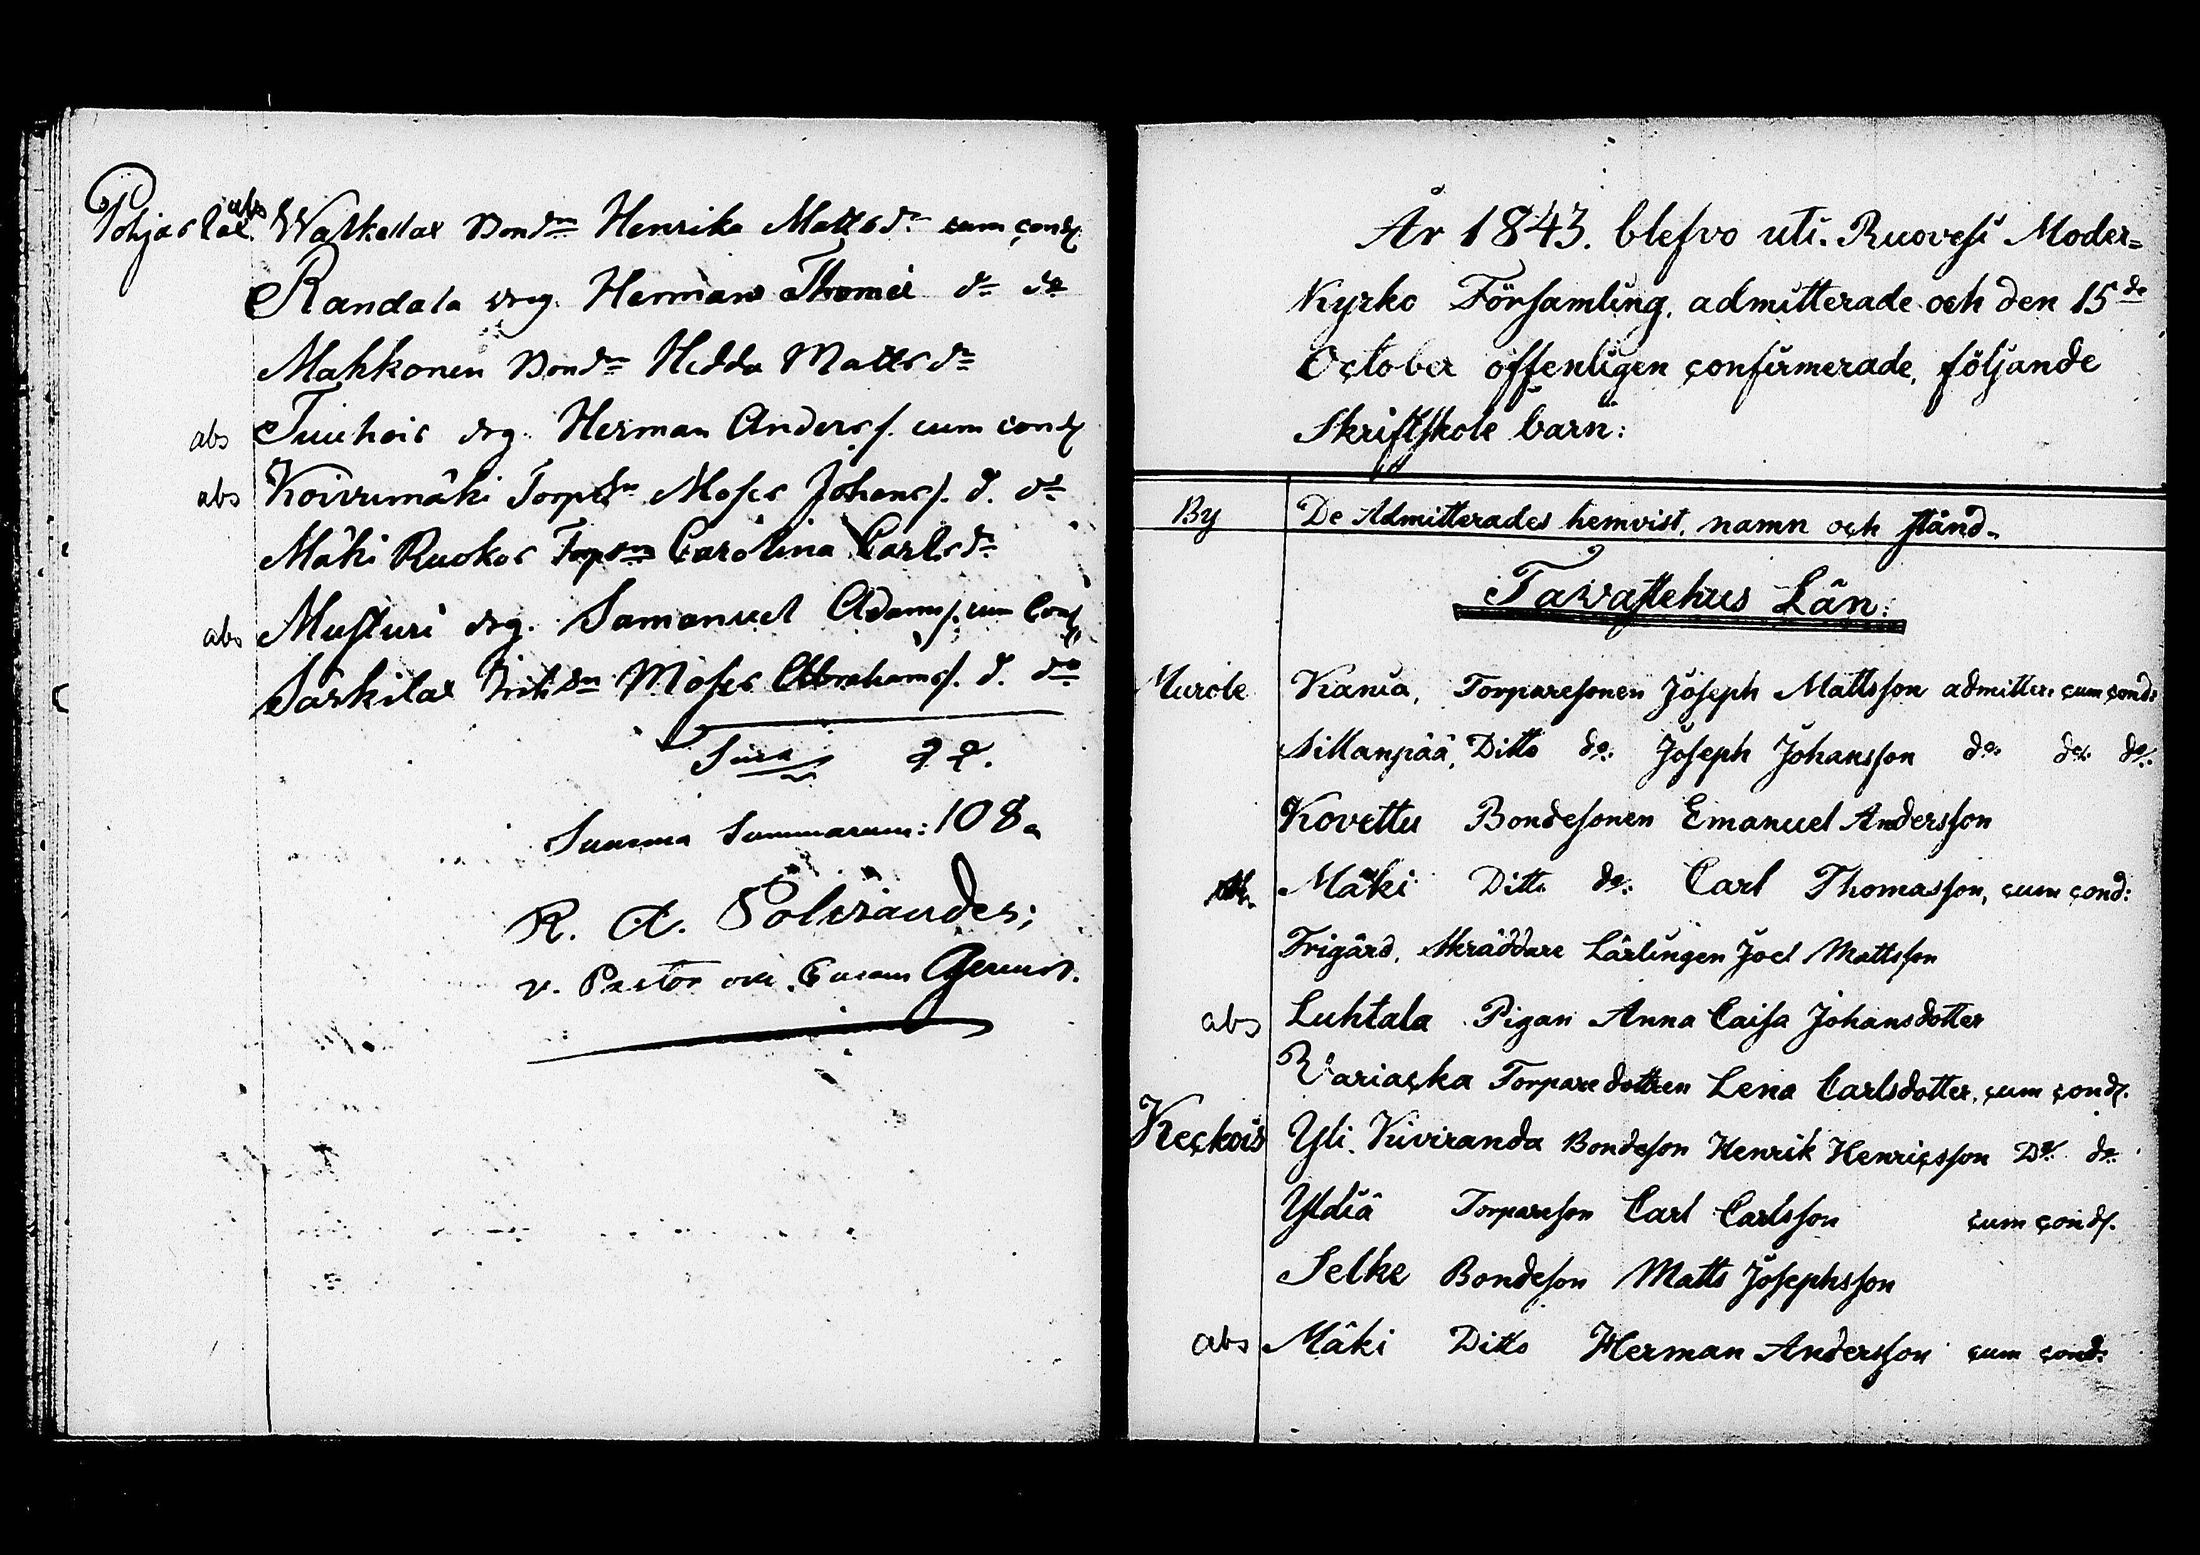 Pohjaslax abs Waskelax Bondn Henrika Mattsdr cum cond
Randala drg. Herman Thomæ do do
Mahkonen Bonddn Hedda Mattsdr
abs Tuuhois drg. Herman Anderss. cum cond
abs Koivumäki Torpsn Moses Johanss. d. do
Mäki Ruokos Torpdn Carolina Carlsdr
abs Musturi drg. Samanuel Adamss. cum Cond
Särkilax Moses Abrahamss. d. do
Summa Summarum: 108
R. A. Polviander;
v. Pastor
År 1843. blefvo uti Ruovesi Moder-
Kyrko Församling, admitterade och den 15de
October offentligen confirmerade, följande
Skriftskole barn:
By De Admitterades hemvist, namn och stånd.
Tavastehus Län.
Murole Kania, Torparesonen Joseph Mattsson admitter. cum cond:
Sillanpää, Ditto do: Joseph Johansson do: do: do:
Kovettu Bondesonen Emanuel Andersson
Mäki Ditto do: Carl Thomasson, cum cond:
Frigård, Skräddare Lärlingen Joel Mattsson
abs Luhtala Pigan Anna Caisa Johansdotter
Variacka Torpare dottren Lena Carlsdotter, cum cond.
Keckois Yli. Kiviranda Bondeson Henrik Henricsson Do do
Yldiä Torpareson Carl Carlsson cum cond.
Selke Bondeson Matts Josephsson
abs Mäki Ditto Herman Andersson cum cond: